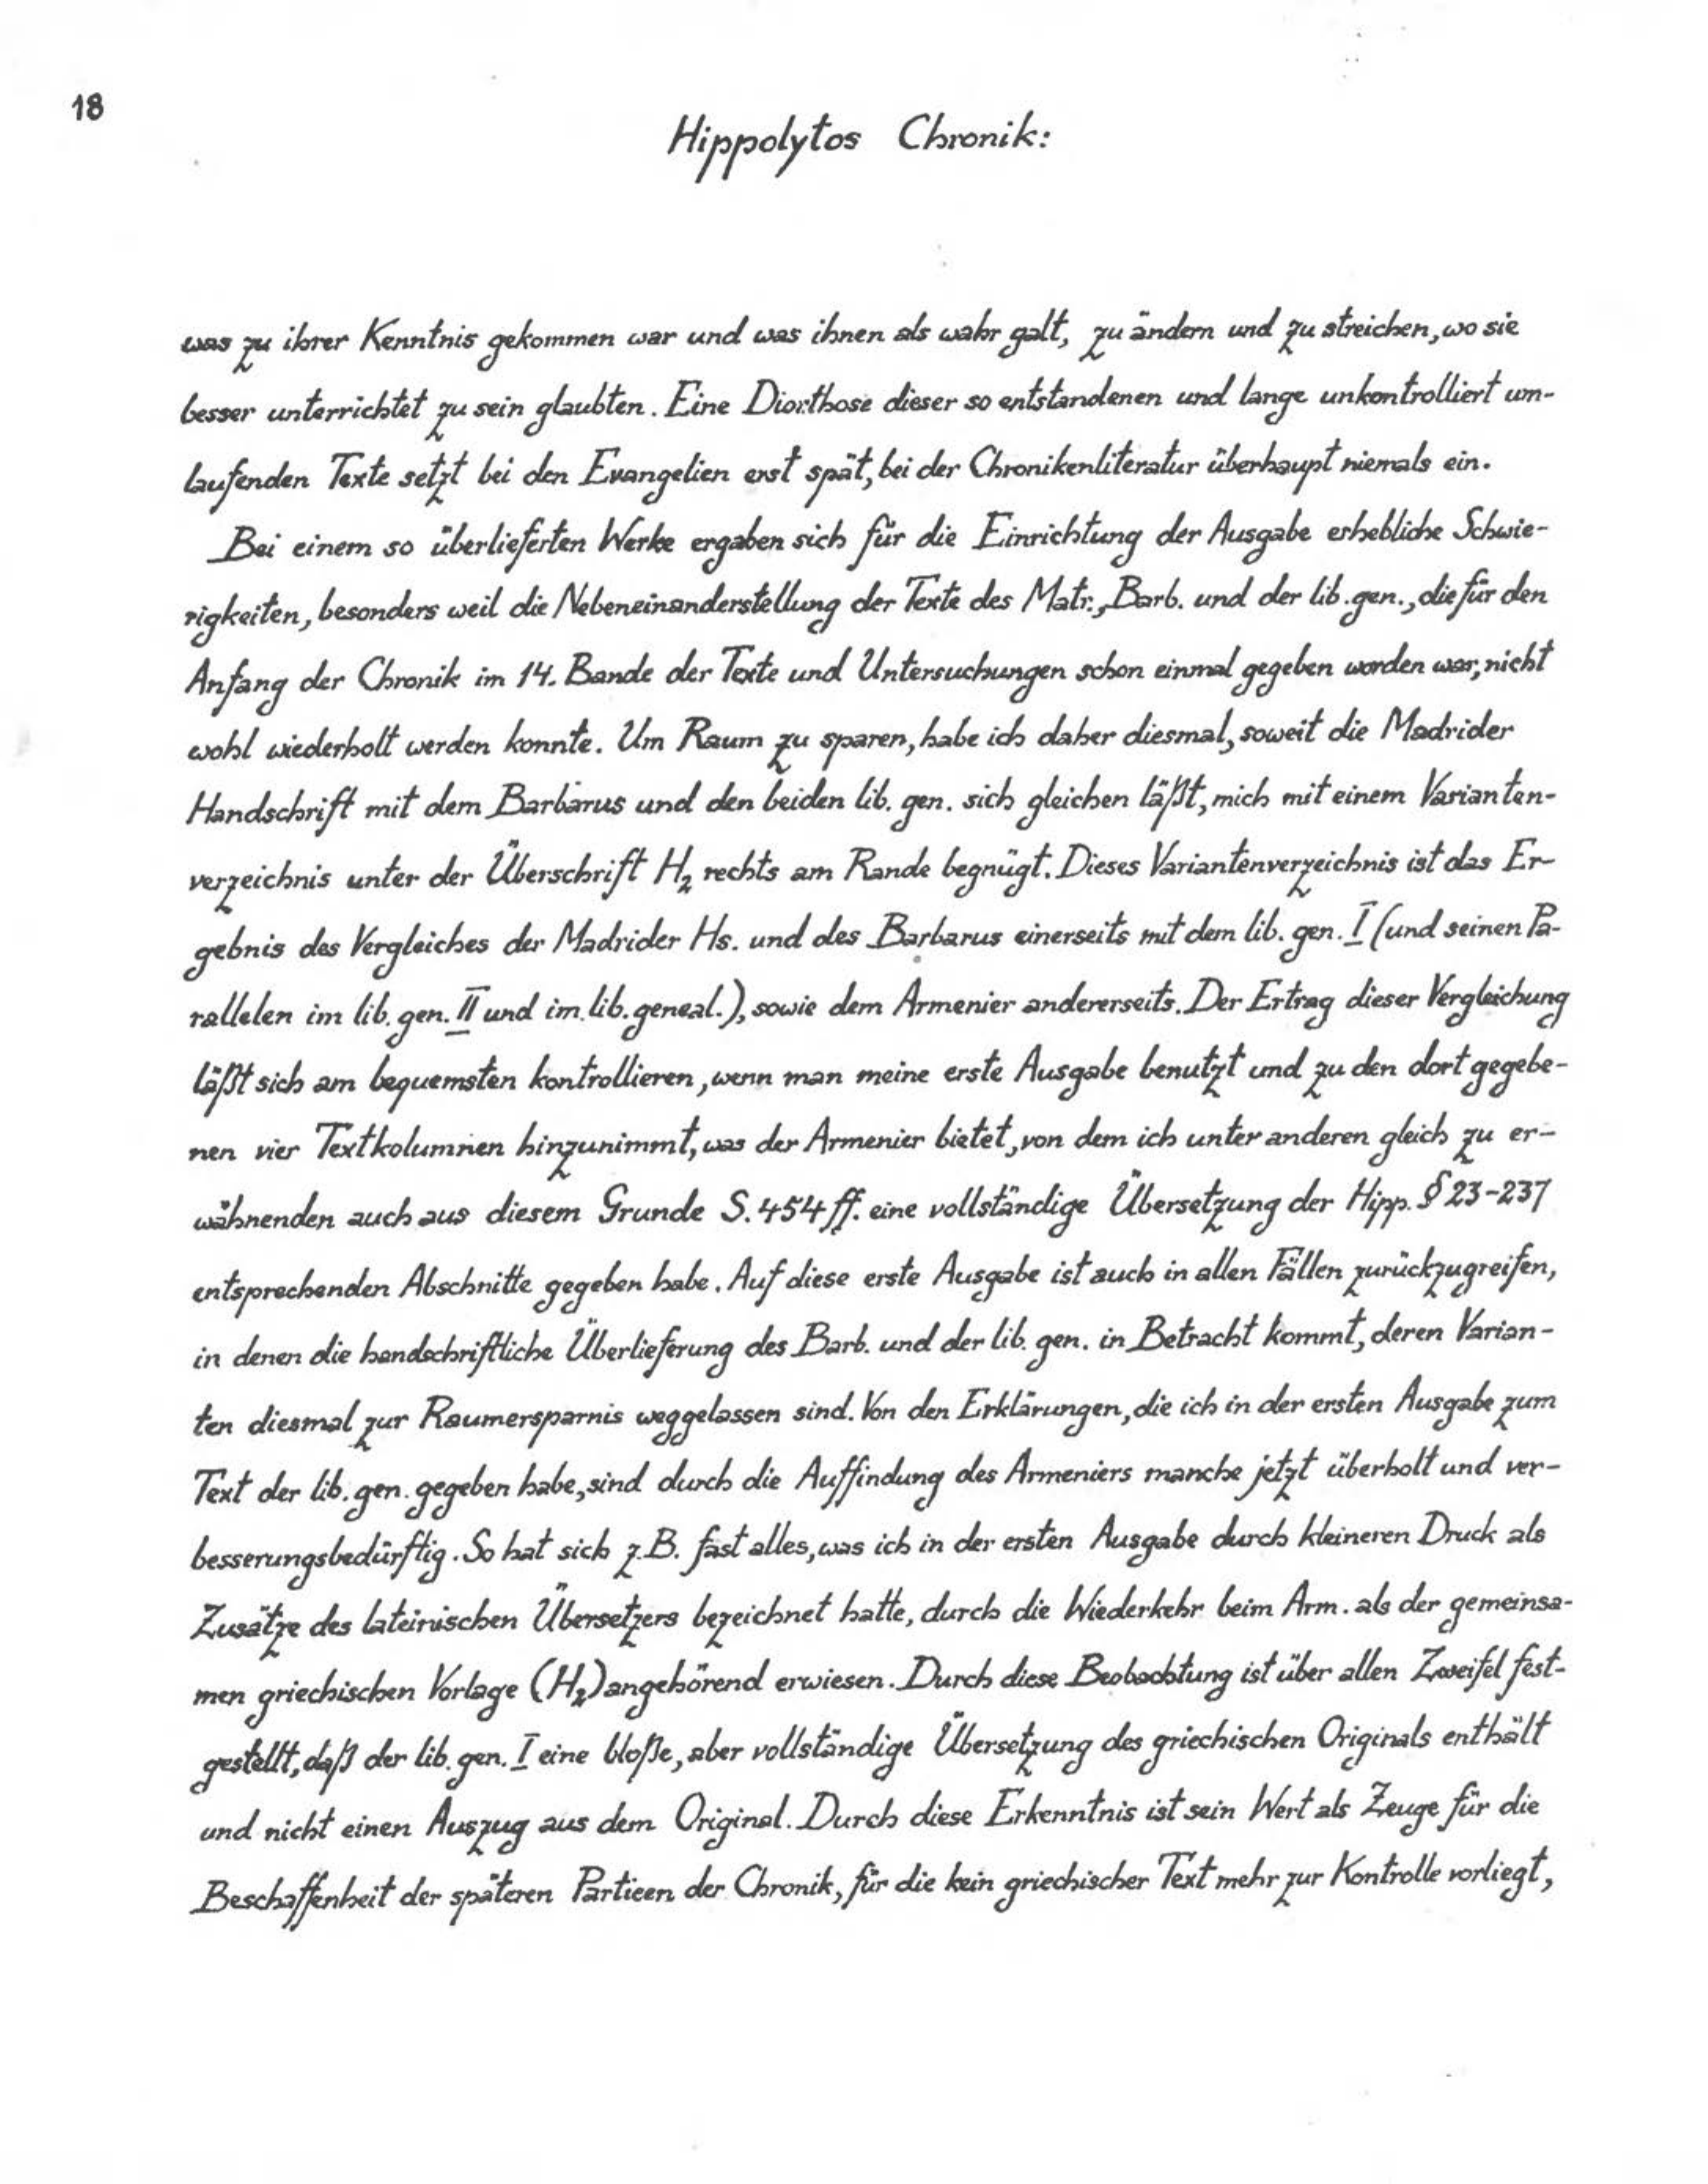 18
Hippolytos Chronik:
was zu ihrer Kenntnis gekommen war und was ihnen als wahr galt, zu ändern und zu streichen, wo sie
besser unterrichtet zu sein glaubten. Eine Diorthose dieser so entstandenen und lange unkontrolliert um-
laufenden Texte setzt bei den Evangelien erst spät, bei der Chronikenliteratur überhaupt niemals ein.
Bei einem so überlieferten Werke ergaben sich für die Einrichtung der Ausgabe erhebliche Schwie-
rigkeiten, besonders weil die Nebeneinanderstellung der Texte des Matr., Barb. und der lib. gen., die für den
Anfang der Chronik im 14. Bande der Texte und Untersuchungen schon einmal gegeben worden war, nicht
wohl wiederholt werden konnte. Um Raum zu sparen, habe ich daher diesmal, soweit die Madrider
Handschrift mit dem Barbarus und den beiden lib. gen. sich gleichen läßt, mich mit einem Varianten-
verzeichnis unter der Überschrift H₂ rechts am Rande begnügt. Dieses Variantenverzeichnis ist das Er-
gebnis des Vergleiches der Madrider Hs. und des Barbarus einerseits mit dem lib. gen. I (und seinen Pa-
rallelen im lib. gen. II und im lib. geneal.), sowie dem Armenier andererseits. Der Ertrag dieser Vergleichung
läßt sich am bequemsten kontrollieren, wenn man meine erste Ausgabe benutzt und zu den dort gegebe-
nen vier Textkolumnen hinzunimmt, was der Armenier bietet, von dem ich unter anderen gleich zu er-
wähnenden auch aus diesem Grunde S. 454 ff. eine vollständige Übersetzung der Hipp. § 23-237
entsprechenden Abschnitte gegeben habe. Auf diese erste Ausgabe ist auch in allen Fällen zurückzugreifen,
in denen die handschriftliche Überlieferung des Barb. und der lib. gen. in Betracht kommt, deren Varian-
ten diesmal zur Raumersparnis weggelassen sind. Von den Erklärungen, die ich in der ersten Ausgabe zum
Text der lib. gen. gegeben habe, sind durch die Auffindung des Armeniers manche jetzt überholt und ver-
besserungsbedürftig. So hat sich z.B. fast alles, was ich in der ersten Ausgabe durch kleineren Druck als
Zusätze des lateinischen Übersetzers bezeichnet hatte, durch die Wiederkehr beim Arm. als der gemeinsa-
men griechischen Vorlage (H₂) angehörend erwiesen. Durch diese Beobachtung ist über allen Zweifel fest-
gestellt, daß der lib. gen. I eine bloße, aber vollständige Übersetzung des griechischen Originals enthält
und nicht einen Auszug aus dem Original. Durch diese Erkenntnis ist sein Wert als Zeuge für die
Beschaffenheit der späteren Partieen der Chronik, für die kein griechischer Text mehr zur Kontrolle vorliegt,